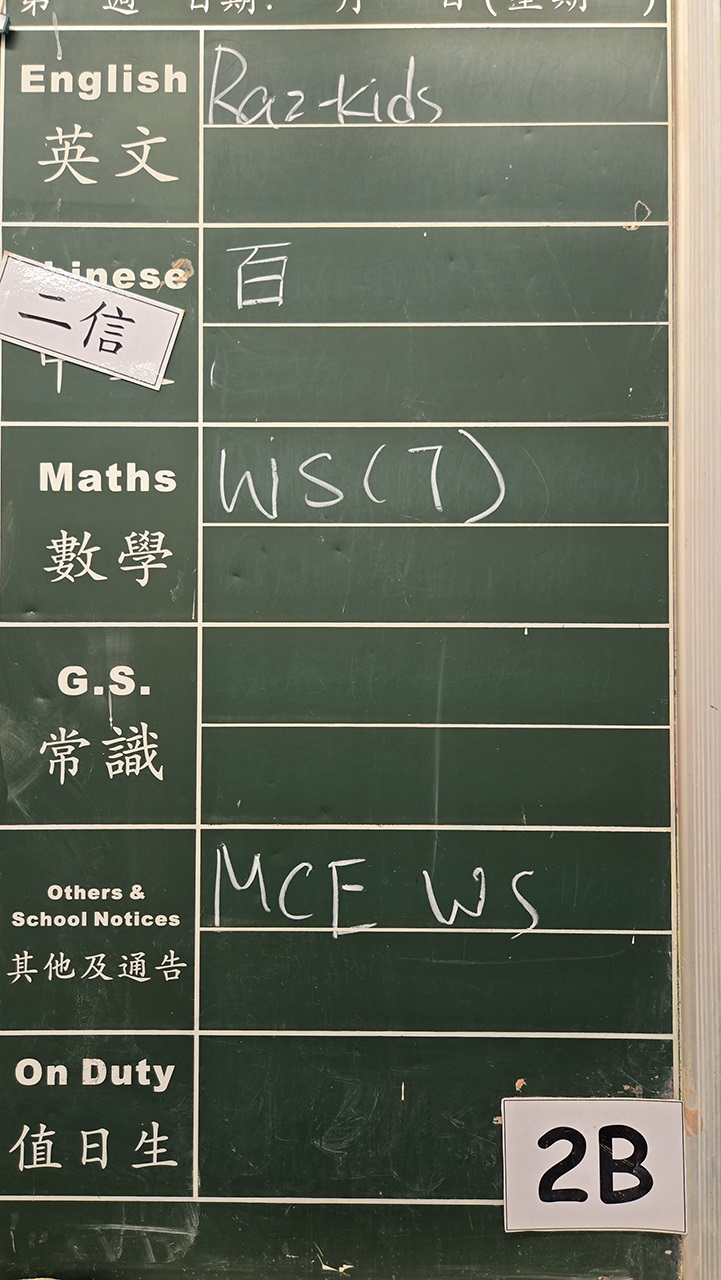 第 週 日期: 月 日(星期 )
English
英文
Raz-kids
百
二信
Maths
數學
WS(7)
G.S.
常識
Others &
School Notices
其他及通告
MCE WS
On Duty
值日生
2B